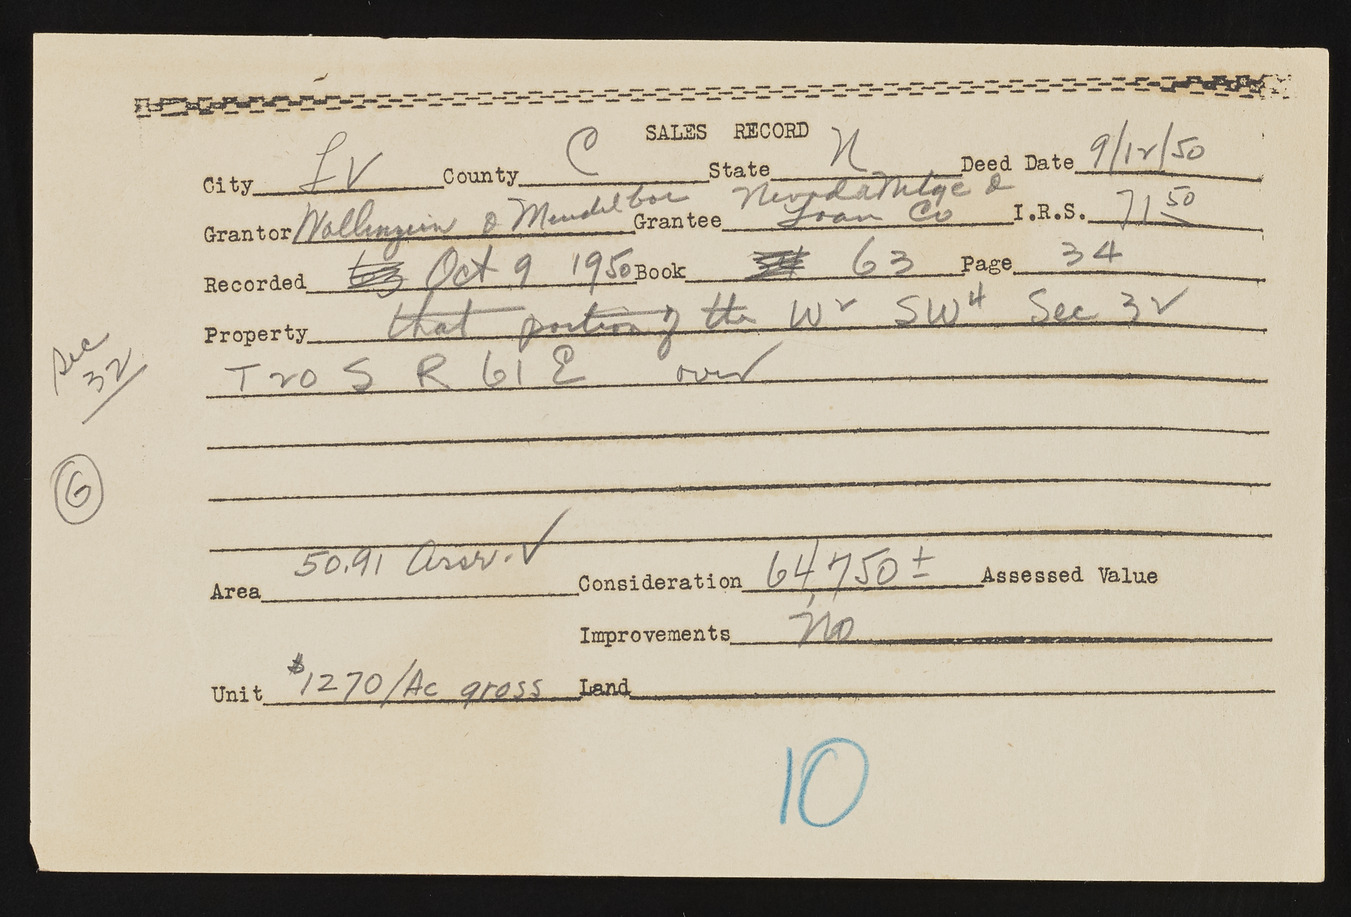 SALES RECORD
City LV County C State N Deed Date 9/12/50
Grantor & Grantee Nevada Mtge & Loan Co I.R.S. 71 50
Recorded Oct 9 1950 Book 63 Page 34
Property that portion of the W2 SW4 Sec 32
Sec 32
T20 S R 61 E over
G
Area 50.91 Assr. Consideration 64,750 ± Assessed Value
Improvements No
Unit $1270/Ac gross Land
10